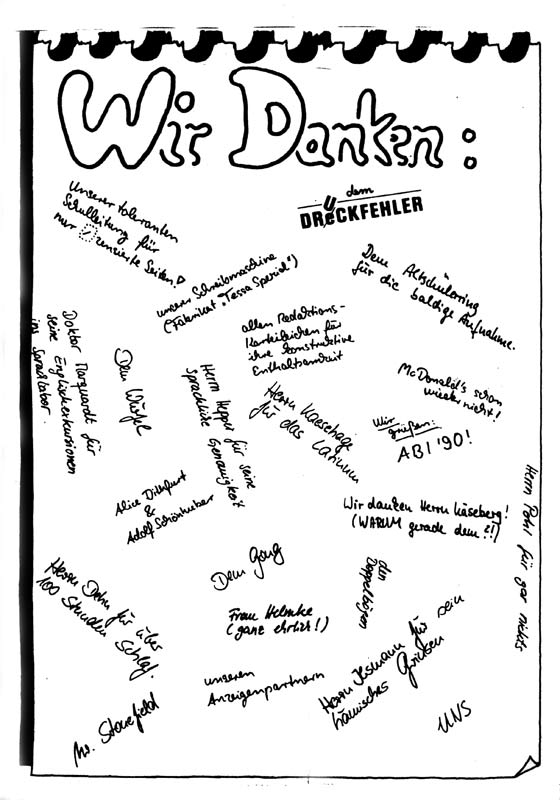 Wir Danken:
dem
DRÜCKFEHLER
Unserer toleranten
Schulleitung für
nur zensierte Seiten!
unserer Schreibmaschine
(Fabrikat "Tessa Spezial")
Dem Altschülerring
für die baldige Aufnahme.
allen Redaktions-
Karteileichen für
ihre konstruktive
Enthaltsamkeit
Doktor Marquardt für
seine Englischexkursionen
ins Sprachlabor.
Dem Würfel
Herrn Hepper für seine
sprachliche Genauigkeit
Herrn Kaeschage
für das Latinum
McDonald's schon
wieder nicht!
Wir
grüßen:
ABI '90!
Alice Dithfurt
&
Adolf Schönhuber
Wir danken Herrn Käseberg!
(WARUM gerade dem?!)
Herrn Pohl für gar nichts
Dem Gong
den
Doppelbögen
Herrn Dehn für über
100 Stunden Schlaf.
Frau Helmke
(ganz ehrlich!)
unseren
Anzeigenpartnern
Herrn Ismann für sein
hämisches Grinsen
Mr. Stonefield
UNS